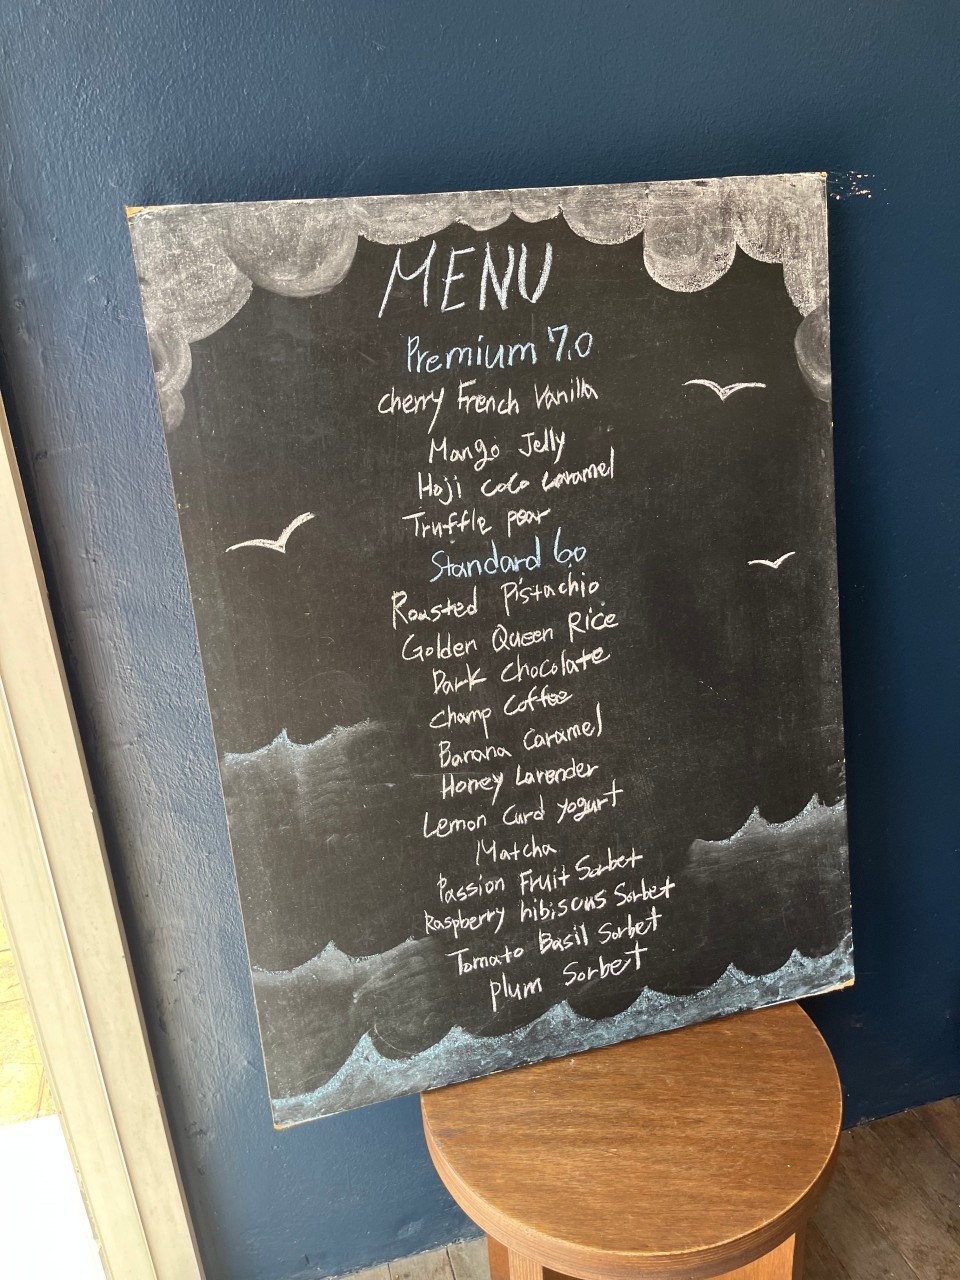 MENU
Premium 7.0
cherry French Vanilla
Mango Jelly
Hoji coco caramel
Truffle pear
Standard 6.0
Roasted Pistachio
Golden Queen Rice
Dark Chocolate
Champ Coffee
Banana Caramel
Honey Lavender
Lemon Curd yogurt
Matcha
Passion Fruit Sorbet
Raspberry hibiscus Sorbet
Tomato Basil Sorbet
plum Sorbet